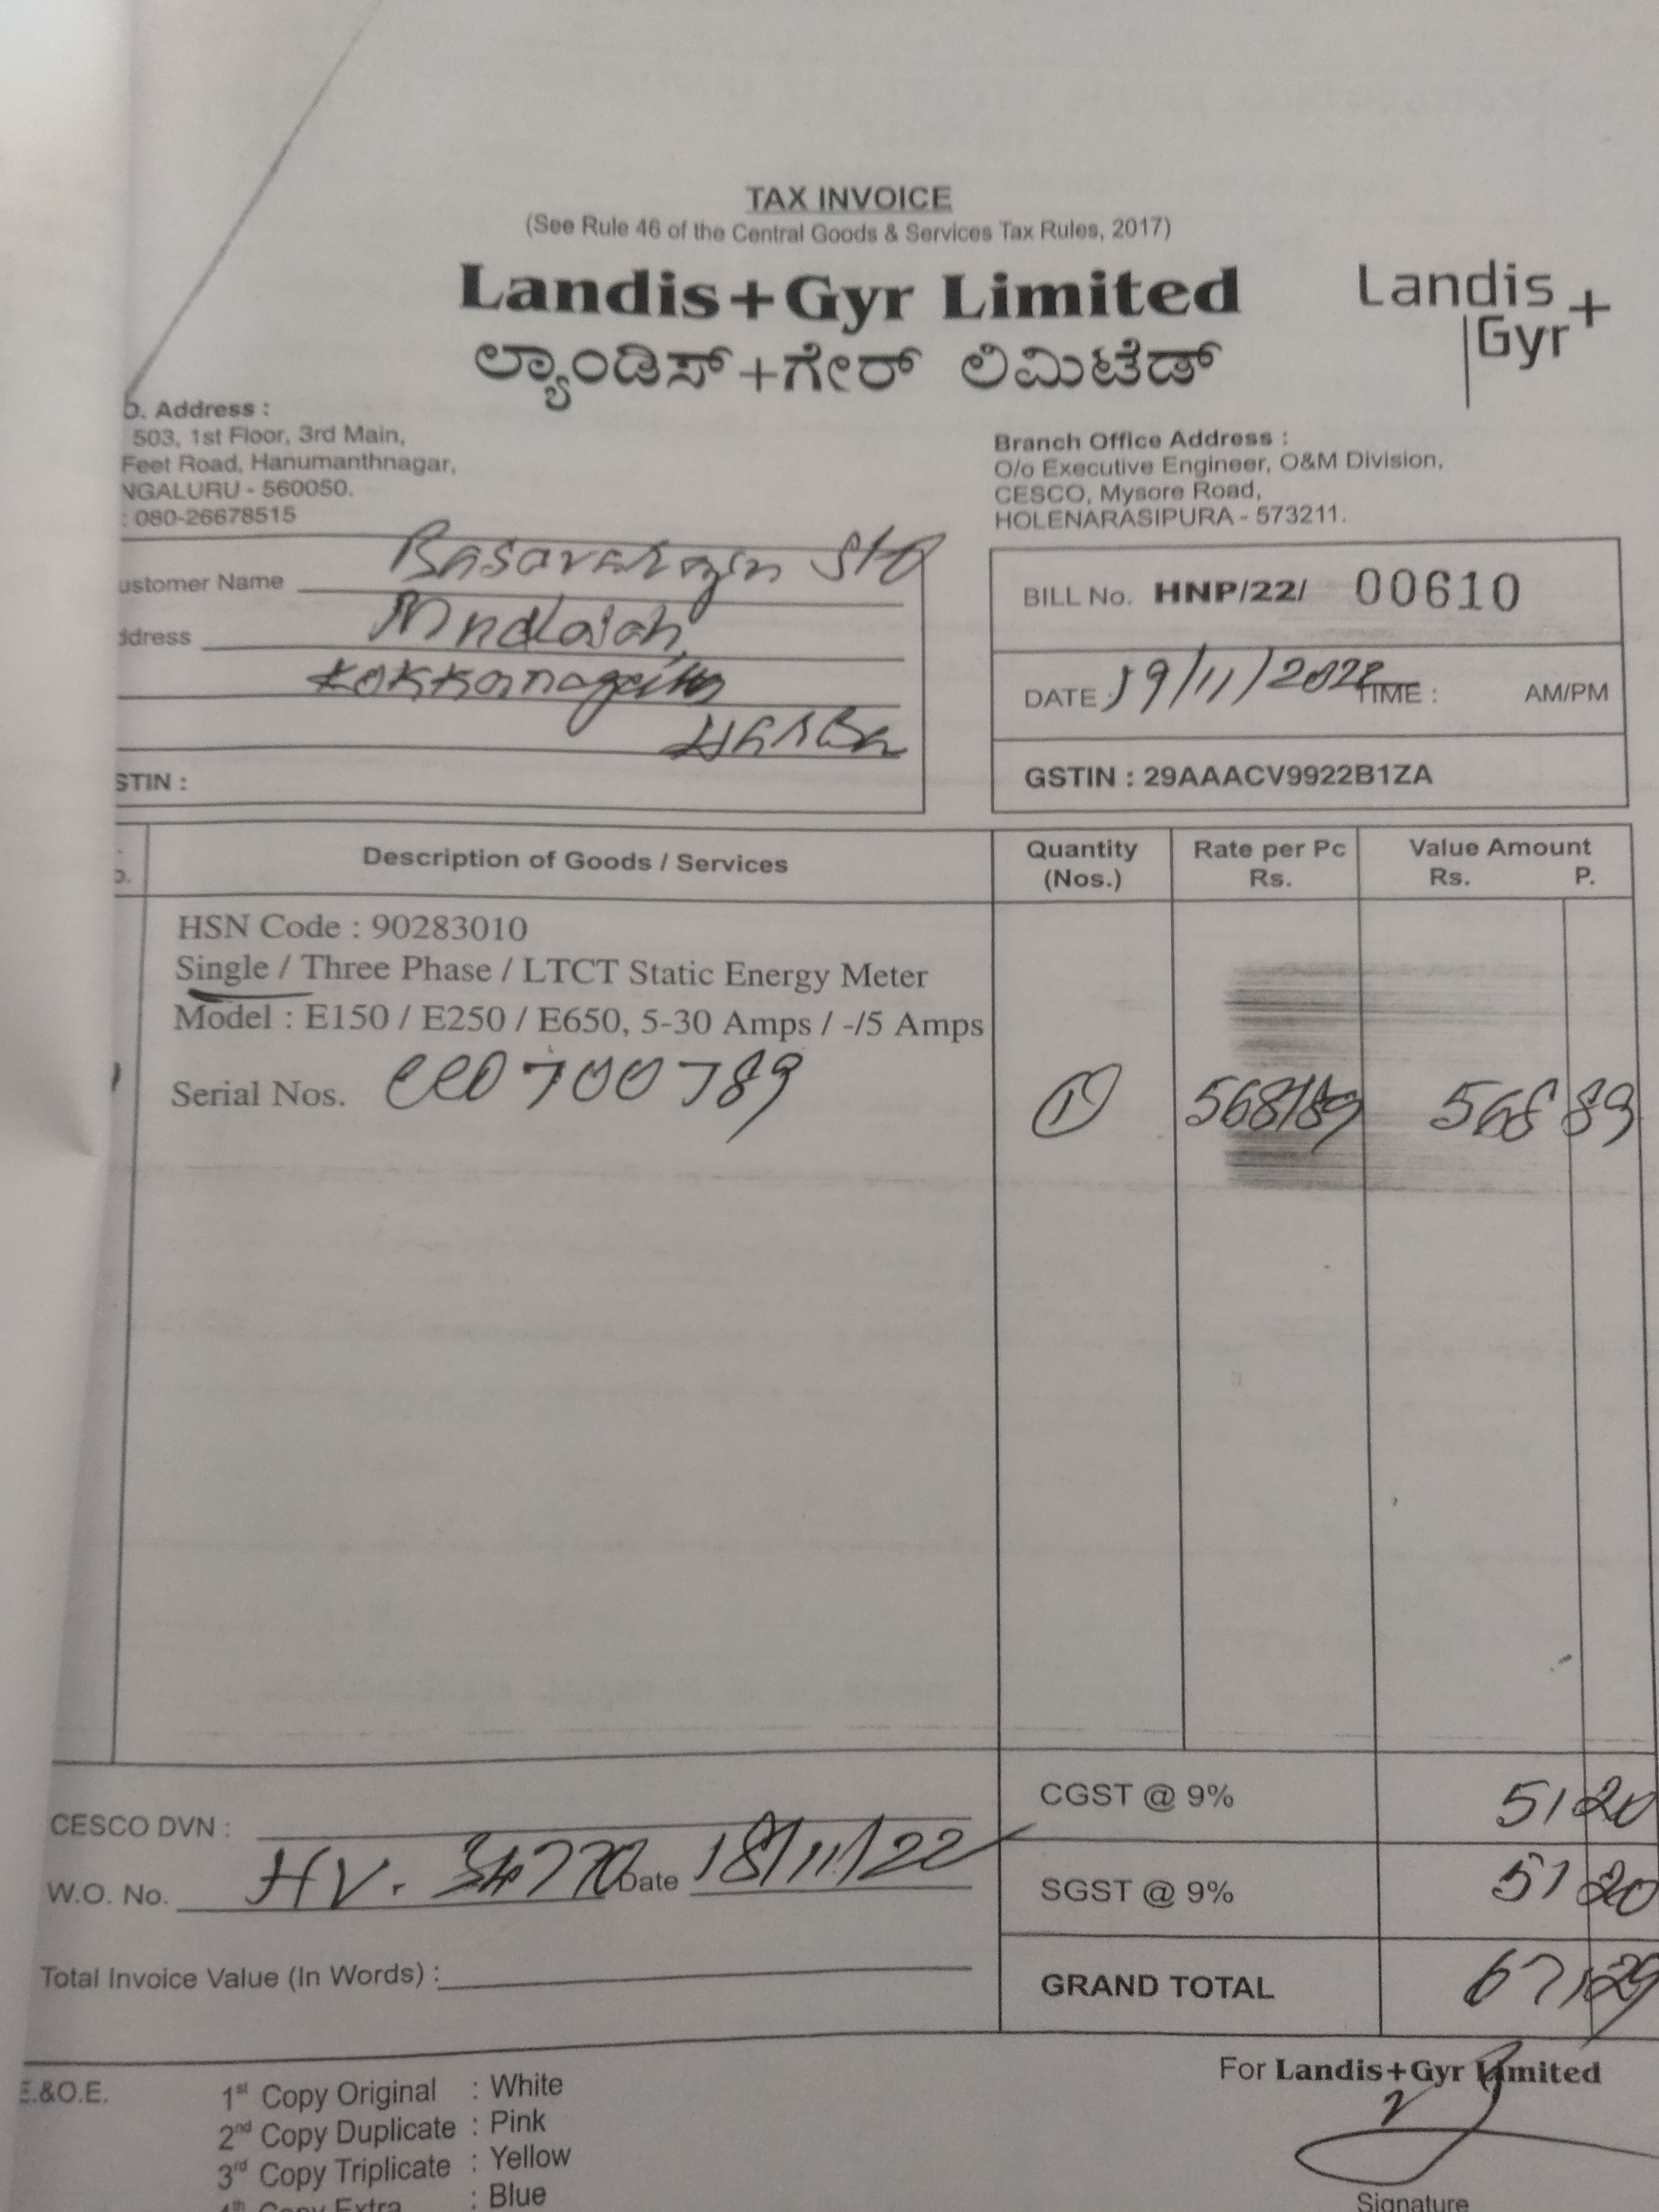 TAX INVOICE
(See Rule 46 of the Central Goods & Services Tax Rules, 2017)
Landis+Gyr Limited
Landis+
Gyr
ಲ್ಯಾಂಡಿಸ್+ಗೇರ್ ಲಿಮಿಟೆಡ್
Address :
503, 1st Floor, 3rd Main,
Feet Road, Hanumanthnagar,
NGALURU - 560050.
: 080-26678515
Branch Office Address :
O/o Executive Engineer, O&M Division,
CESCO, Mysore Road,
HOLENARASIPURA - 573211.
ustomer Name S/O
ddress
STIN :
BILL No. HNP/22/ 00610
DATE : 19/11/2022 TIME : AM/PM
GSTIN : 29AAACV9922B1ZA
Description of Goods / Services
Quantity
(Nos.)
Rate per Pc
Rs.
Value Amount
Rs. P.
HSN Code : 90283010
Single / Three Phase / LTCT Static Energy Meter
Model : E150 / E250 / E650, 5-30 Amps / -/5 Amps
Serial Nos. 1 568/89 568 89
CGST @ 9% 51 20
CESCO DVN :
W.O. No. HV. Date 18/11/22
SGST @ 9% 51 20
Total Invoice Value (In Words) :
GRAND TOTAL 671 29
E.&O.E.
1st Copy Original : White
2nd Copy Duplicate : Pink
3rd Copy Triplicate : Yellow
4th Copy Extra : Blue
For Landis+Gyr Limited
Signature